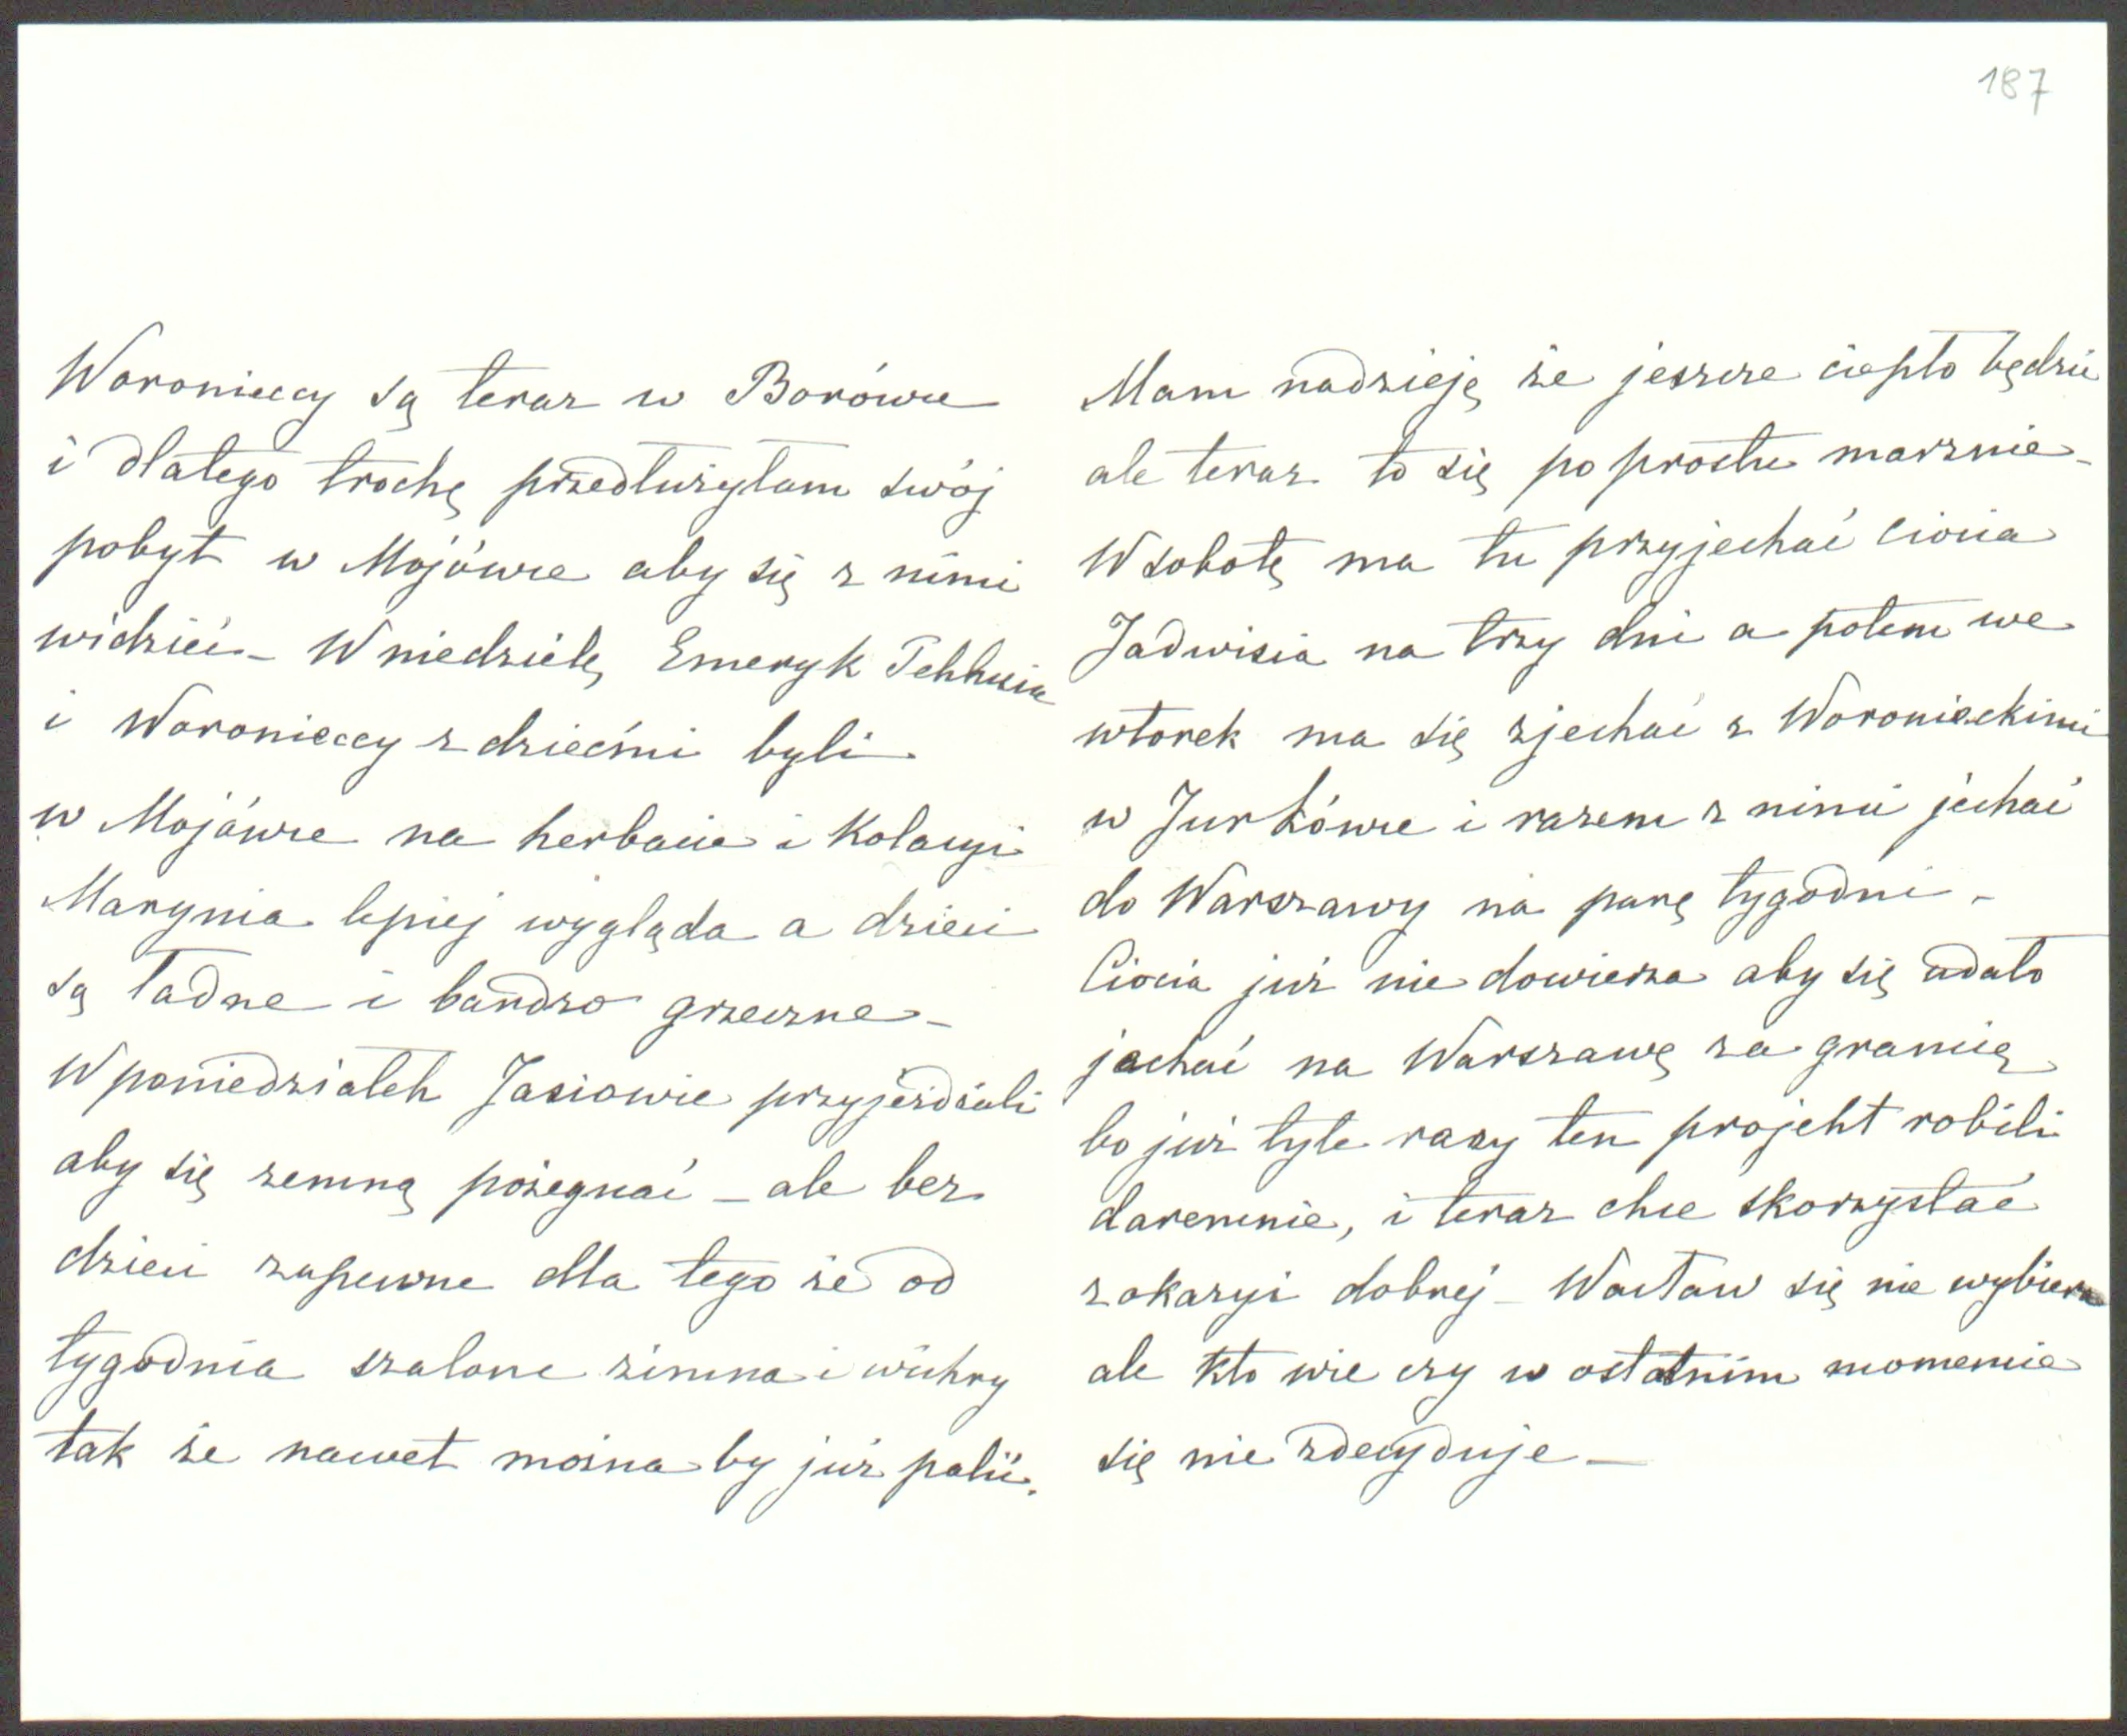 187
Woronieccy są teraz w Borówce
i dlatego trochę przedłużyłam swój
pobyt w Mojówce aby się z nimi
widzieć – W niedzielę Emeryk
i Woronieccy z dziećmi byli
w Mojówce na herbacie i kolacyi
Marynia lepiej wygląda a dzieci
są ładne i bardzo grzeczne –
W poniedziałek Jasiowie przyjeżdżali
aby się zemną pożegnać – ale bez
dzieci zapewne dla tego że od
tygodnia szalone zimna i wichry
tak że nawet można by już palić.
Mam nadzieję że jeszcze ciepło będzie
ale teraz to się po prostu marznie –
W sobotę ma tu przyjechać Ciocia
Jadwisia na trzy dni a potem we
wtorek ma się zjechać z Woronieckimi
w Jurkówce i razem z nimi jechać
do Warszawy na parę tygodni –
Ciocia już nie dowierza aby się udało
jechać na Warszawę za granicę
bo już tyle razy ten projekt robili
daremnie, i teraz chce skorzystać
z okazyi dobrej – Wacław się nie wybiera
ale kto wie czy w ostatnim momencie
się nie zdecyduje –